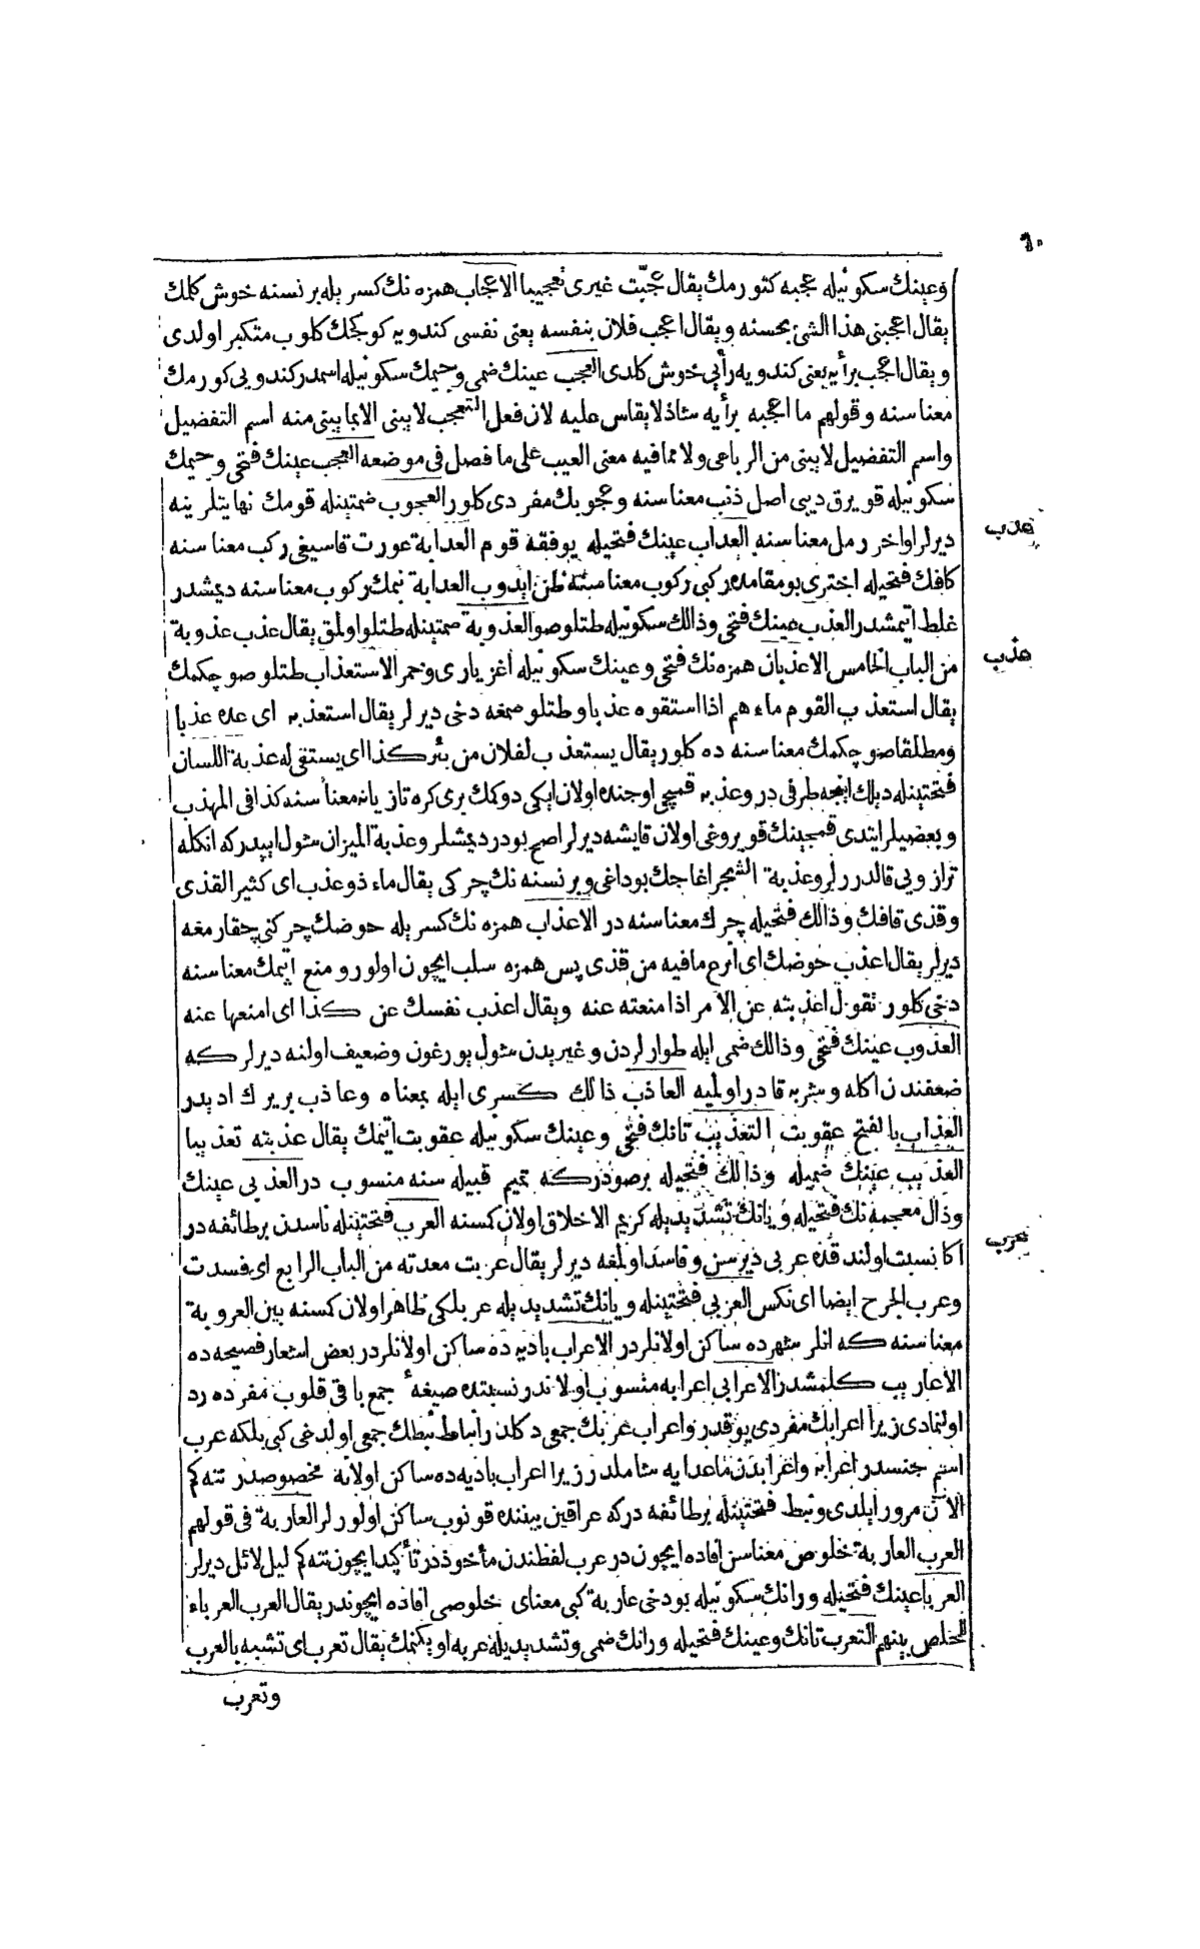 ٦٠
وعينك سكونيله عجبه كتورمك يقال عجبت غيرى تعجيبا الاعجاب همزه نك كسريله بر نسنه خوش كلمك
يقال اعجبنى هذا الشئ بحسنه ويقال اعجب فلان بنفسه يعنى نفسى كندويه كوكجك كلوب متكبر اولدى
ويقال اعجب برأيه يعنى كندويه رأيى خوش كلدى العجب عينك ضمى وجيمك سكونيله اسمدر كندويى كورمك
معناسنه وقولهم ما اعجبه برأيه شاذ لايقاس عليه لان فعل التعجب لايبنى الا بما يبنى منه اسم التفضيل
واسم التفضيل لايبنى من الرباعى ولا مما فيه معنى العيب على ما فصل فى موضعه العجب عينك فتحى وجيمك
سكونيله قويرق ديبى اصل ذنب معناسنه وعجوبك مفردى كلور العجوب ضمتينله قومك نهايتلرينه
ديرلر اواخر رمل معناسنه العداب عينك فتحيله يوفقه قوم العدابة عورت قاسيغى ركب معناسنه
كافك فتحيله اخترى بو مقامده ركبى ركوب معناسنه ظن ايدوب العدابة نيمك ركوب معناسنه ديمشدر
غلط ايتمشدر العذب عينك فتحى وذالك سكونيله طتلو صو العذوبة ضمتينله طتلو اولمق يقال عذب عذوبة
من الباب الخامس الاعذبان همزه نك فتحى وعينك سكونيله اغز يارى وخمر الاستعذاب طتلو صو چكمك
يقال استعذب القوم ماءهم اذا استقوه عذبا وطتلو صمغه دخى ديرلر يقال استعذبه اى عده عذبا
ومطلقا صو چكمك معناسنه ده كلور يقال يستعذب لفلان من بئر كذا اى يستقى له عذبة اللسان
فتحتينله ديلك اينجه طرفى در وعذبه قمچى اوجنده اولان ايكى دوكمك يرى كره تازيانه معناسنه كذا فى المهذب
وبعضيلر ايتدى قمچينك قويروغى اولان قايشه ديرلر اصح بودر ديمشلر وعذبة الميزان شول ايپدركه انكله
ترازويى قالدررلر وعذبة الشجر اغاجك بوداغى وبر نسنه نك چركى يقال ماء ذو عذب اى كثير القذى
وقذى قافك وذالك فتحيله چرك معناسنه در الاعذاب همزه نك كسريله حوضك چركنى چقارمغه
ديرلر يقال اعذب حوضك اى انزع مافيه من قذى پس همزه سلب ايچون اولور ومنع ايتمك معناسنه
دخى كلور تقول اعذبته عن الامر اذا منعته عنه ويقال اعذب نفسك عن كذا اى امنعها عنه
العذوب عينك فتحى وذالك ضمى ايله طوارلردن وغيريدن شول يورغون وضعيف اولنه ديرلر كه
ضعفندن اكله وشربه قادر اولميه العاذب ذالك كسرى ايله بمعناه وعاذب بر يرك اديدر
العذاب بالفتح عقوبت التعذيب تانك فتحى وعينك سكونيله عقوبت ايتمك يقال عذبته تعذيبا
العذيب عينك ضميله وذالك فتحيله بر صودركه تميم قبيله سنه منسوب در العذبى عينك
وذال معجمه نك فتحيله ويانك تشديديله كريم الاخلاق اولان كسنه العرب فتحتينله ناسدن بر طائفه در
اكا نسبت اولندقده عربى ديرسن وفاسد اولمغه ديرلر يقال عربت معدته من الباب الرابع اى فسدت
وعرب الجرح ايضا اى نكس العربى فتحتينله ويانك تشديديله عربلكى ظاهر اولان كسنه بين العروبة
معناسنه كه انلر شهرده ساكن اولانلردر الاعراب باديه ده ساكن اولانلردر بعض اشعار فصيحه ده
الاعاريب كلمشدر الاعرابى اعرابه منسوب اولاندر نسبتده صيغهٔ جمع باقى قلوب مفرده رد
اولنمادى زيرا اعرابك مفردى يوقدر واعراب عربك جمعى دكلدر انباط نبطك جمعى اولدغى كبى بلكه عرب
اسم جنسدر اعرابه واعرابدن ماعدايه شاملدر زيرا اعراب باديه ده ساكن اولانه مخصوصدر نته كم
الآن مرور ايلدى ونبط فتحتينله بر طائفه دركه عراقين بيننده قونوب ساكن اولورلر العاربة فى قولهم
العرب العاربة خلوص معناسن افاده ايچون در عرب لفظندن مأخوذدر تأكيد ايچون نته كم ليل لائل ديرلر
العرباء عينك فتحيله ورانك سكونيله بودخى عاربة كبى معناى خلوصى افاده ايچوندر يقال العرب العرباء
للخلص بينهم التعرب تانك وعينك فتحيله ورانك ضمى وتشديديله عربه اويكنمك يقال تعرب اى تشبه بالعرب
وتعرب
عدب
عذب
عرب